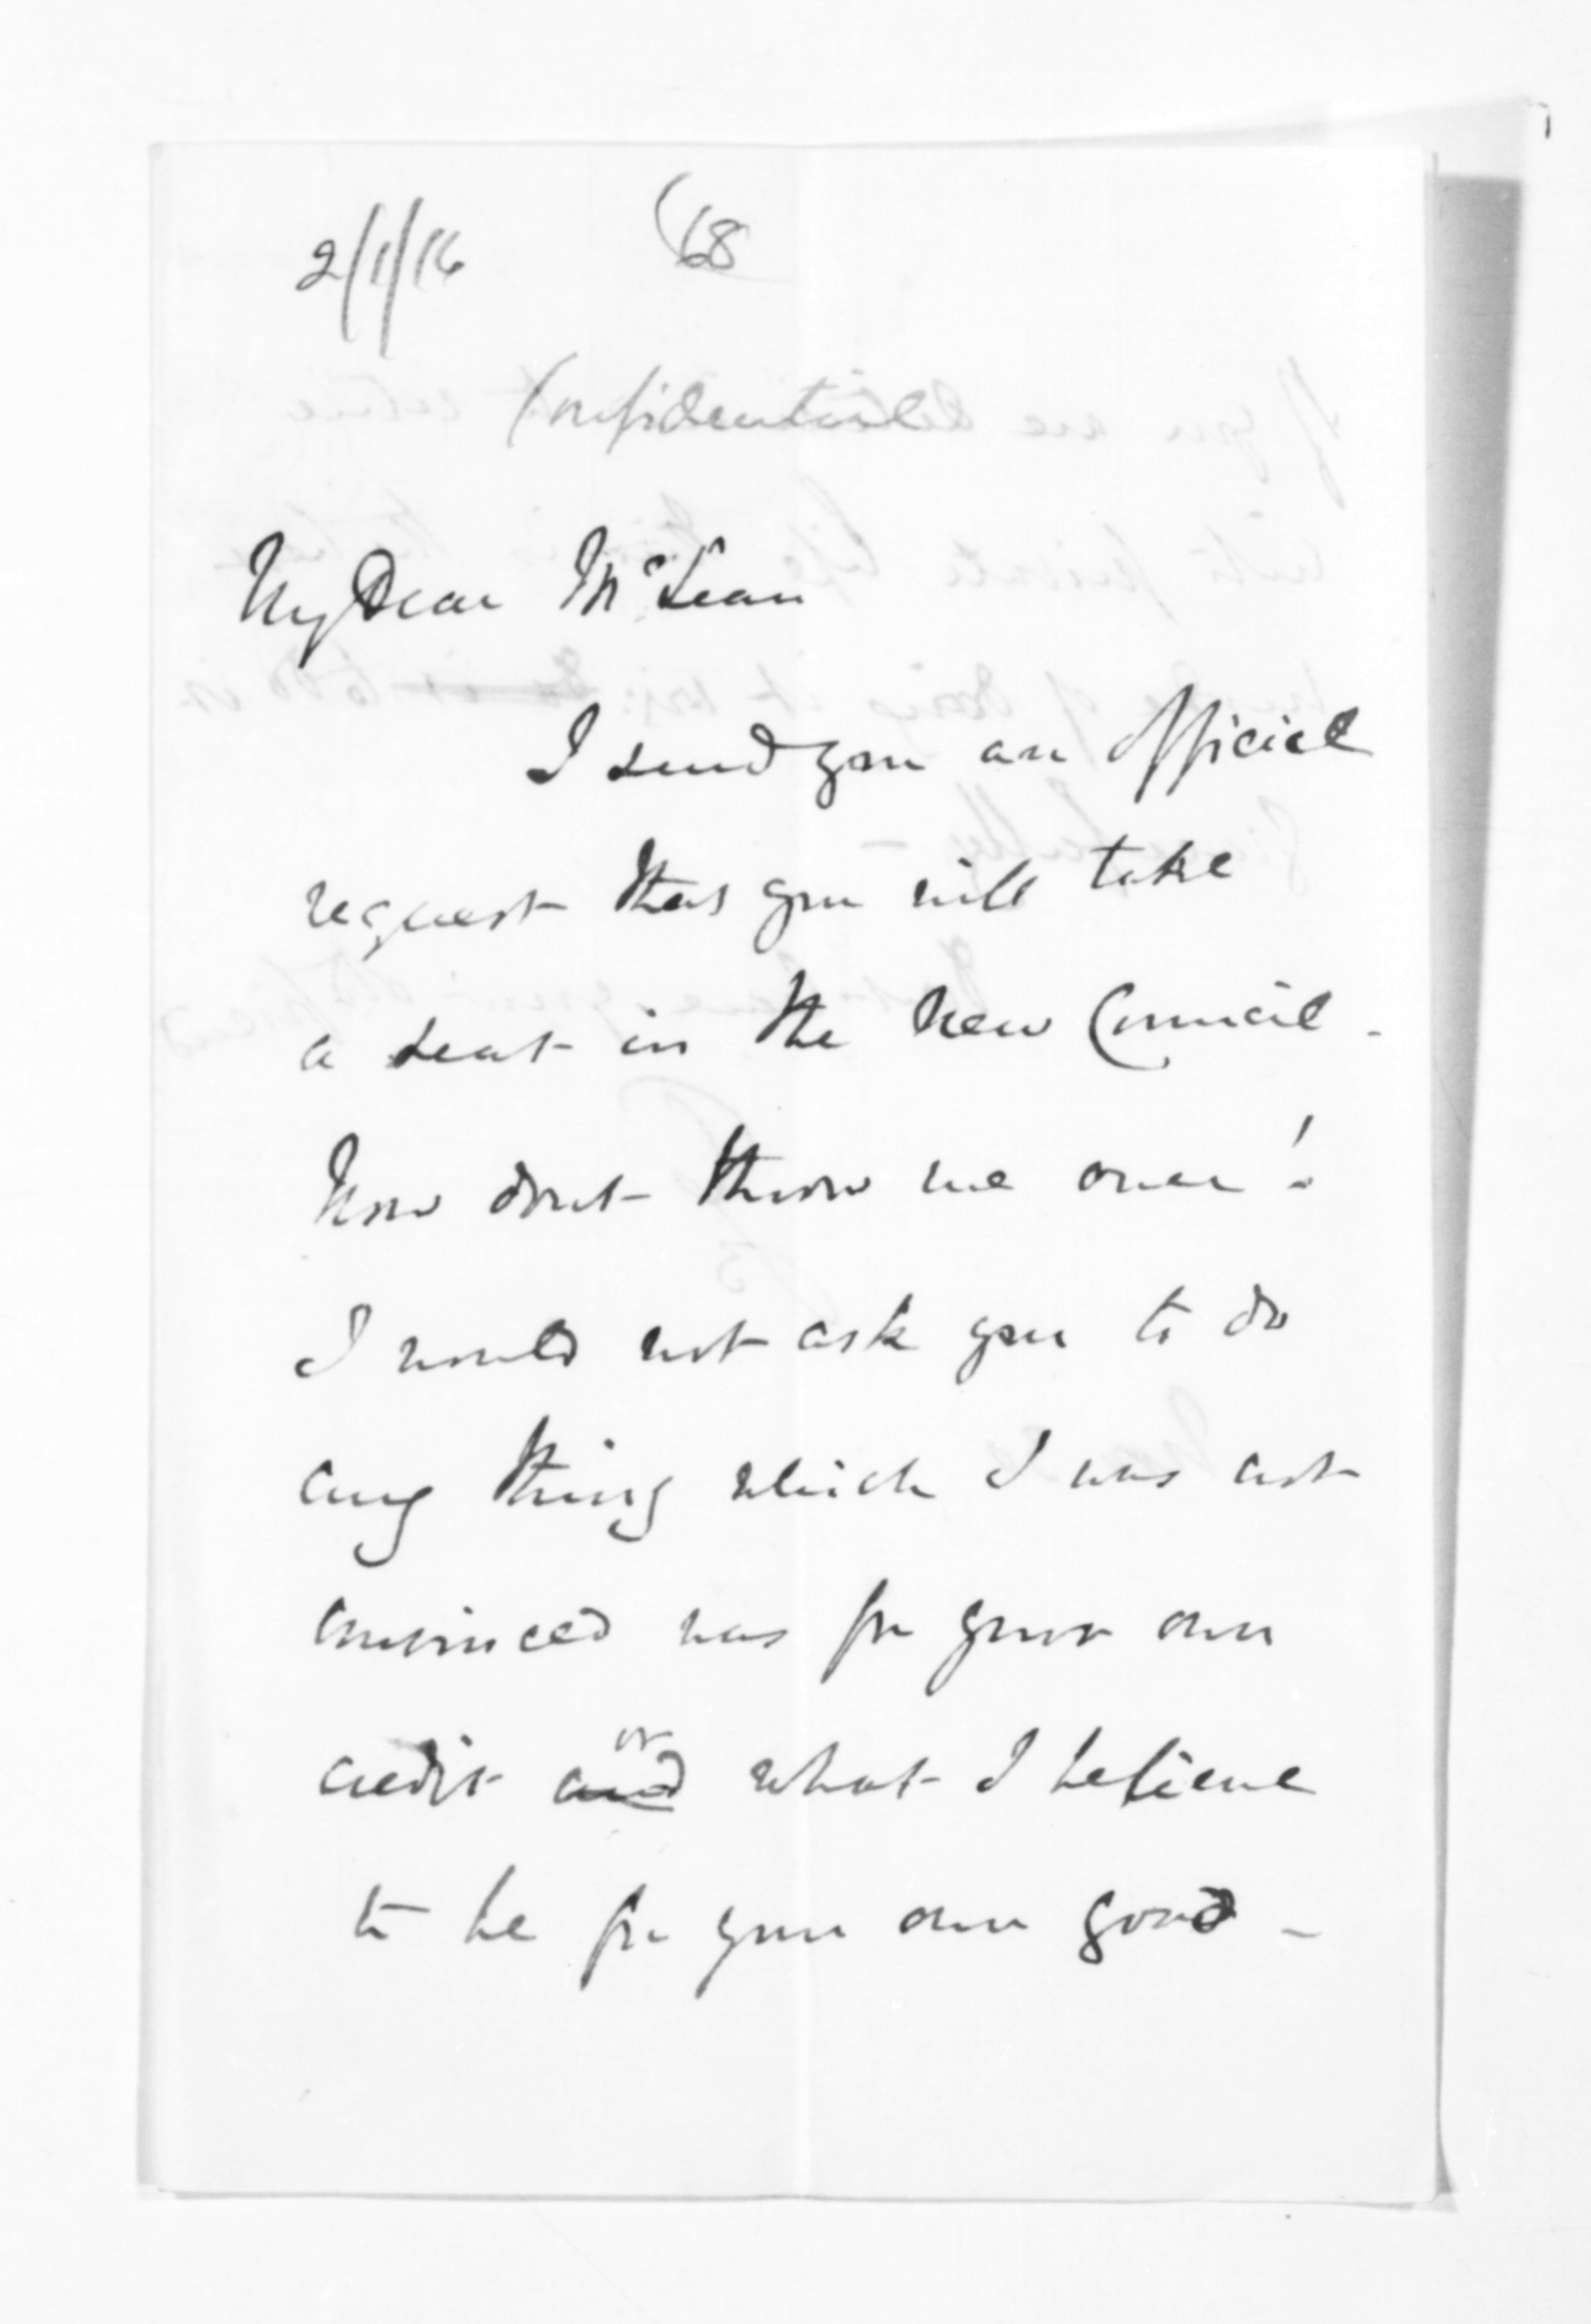 2/1/16 68
Confidential
My Dear McLean
I send you an Official
request that you will take
a seat in the New Council -
Now dont throw me over!
I would not ask you to do
any thing which I was not
convinced was for your own
credit and or what I believe
to be for your own good -